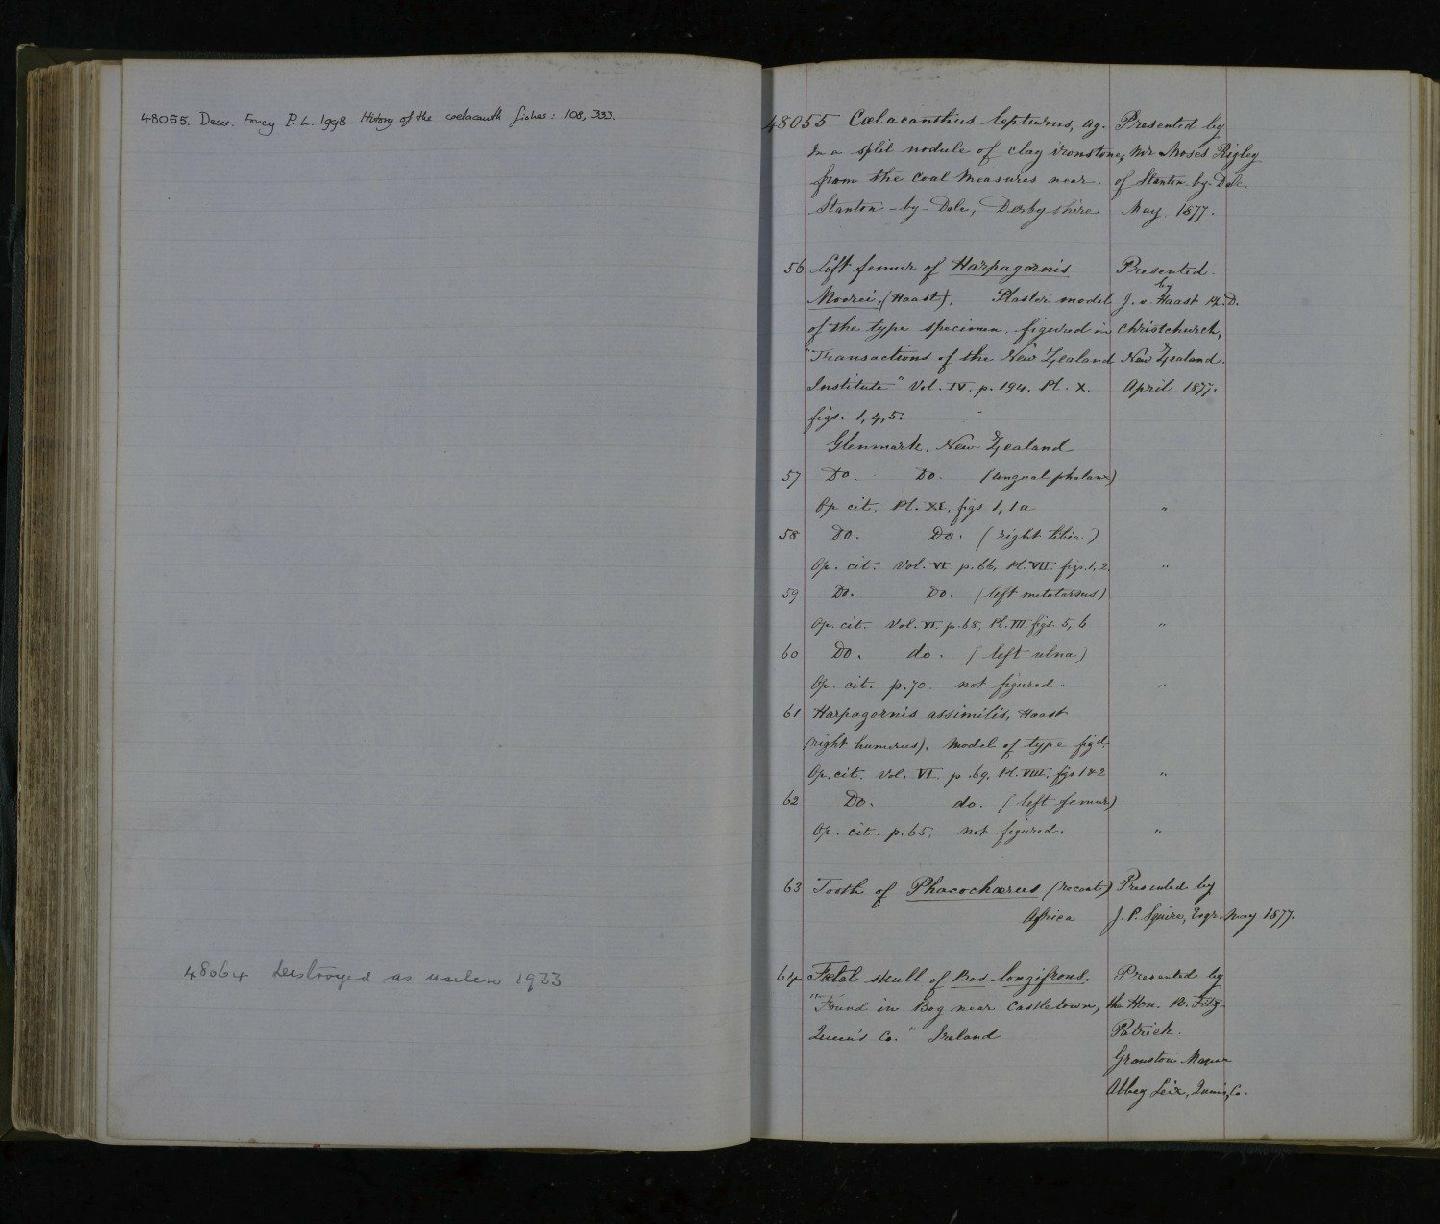 48055. Descr. Forey P. L. 1998 History of the coelacanth fishes: 108, 333.
48064 Destroyed as useless 1933
48055 Cœlacanthus lepturus, Ag. Presented by
In a split nodule of clay ironstone, Mr Moses Rigley
from the Coal Measures near of Stanton-by-Dale.
Stanton-by-Dale, Derbyshire May. 1877.
56 Left femur of Harpagornis Presented
Moorei. (Haast). Plaster model by J. v. Haast Ph.D.
of the type specimen, figured in Christchurch,
"Transactions of the New Zealand New Zealand.
Institute" Vol. IV. p. 194. Pl. X. April 1877.
figs. 1, 4, 5.
Glenmark, New Zealand
57 Do. Do. (ungual phalanx)
Op. cit. Pl. XI, figs 1, 1a "
58 Do. Do. (right tibia.)
Op. cit. Vol. VI p. 66, Pl. VII. figs. 1, 2. "
59 Do. Do. (left metatarsus)
Op. cit. Vol. VI. p. 68, Pl. VII figs. 5, 6 "
60 Do. do. (left ulna)
Op. cit. p. 70. not figured. "
61 Harpagornis assimilis, Haast
(right humerus). Model of type figd.
Op. cit. Vol. VI. p. 69. Pl. VIII. figs 1 & 2 "
62 Do. do. (left femur)
Op. cit. p. 65, not figured. "
63 Tooth of Phacochærus (recent) Presented by
Africa J. P. Squire, Esqr. May 1877.
64 Fœtal skull of Bos longifrons. Presented by
"Found in Bog near Castletown, the Hon. B. Fitz-
Queen's Co." Ireland Patrick.
Granston Manor
Abbey Leix, Queens Co.